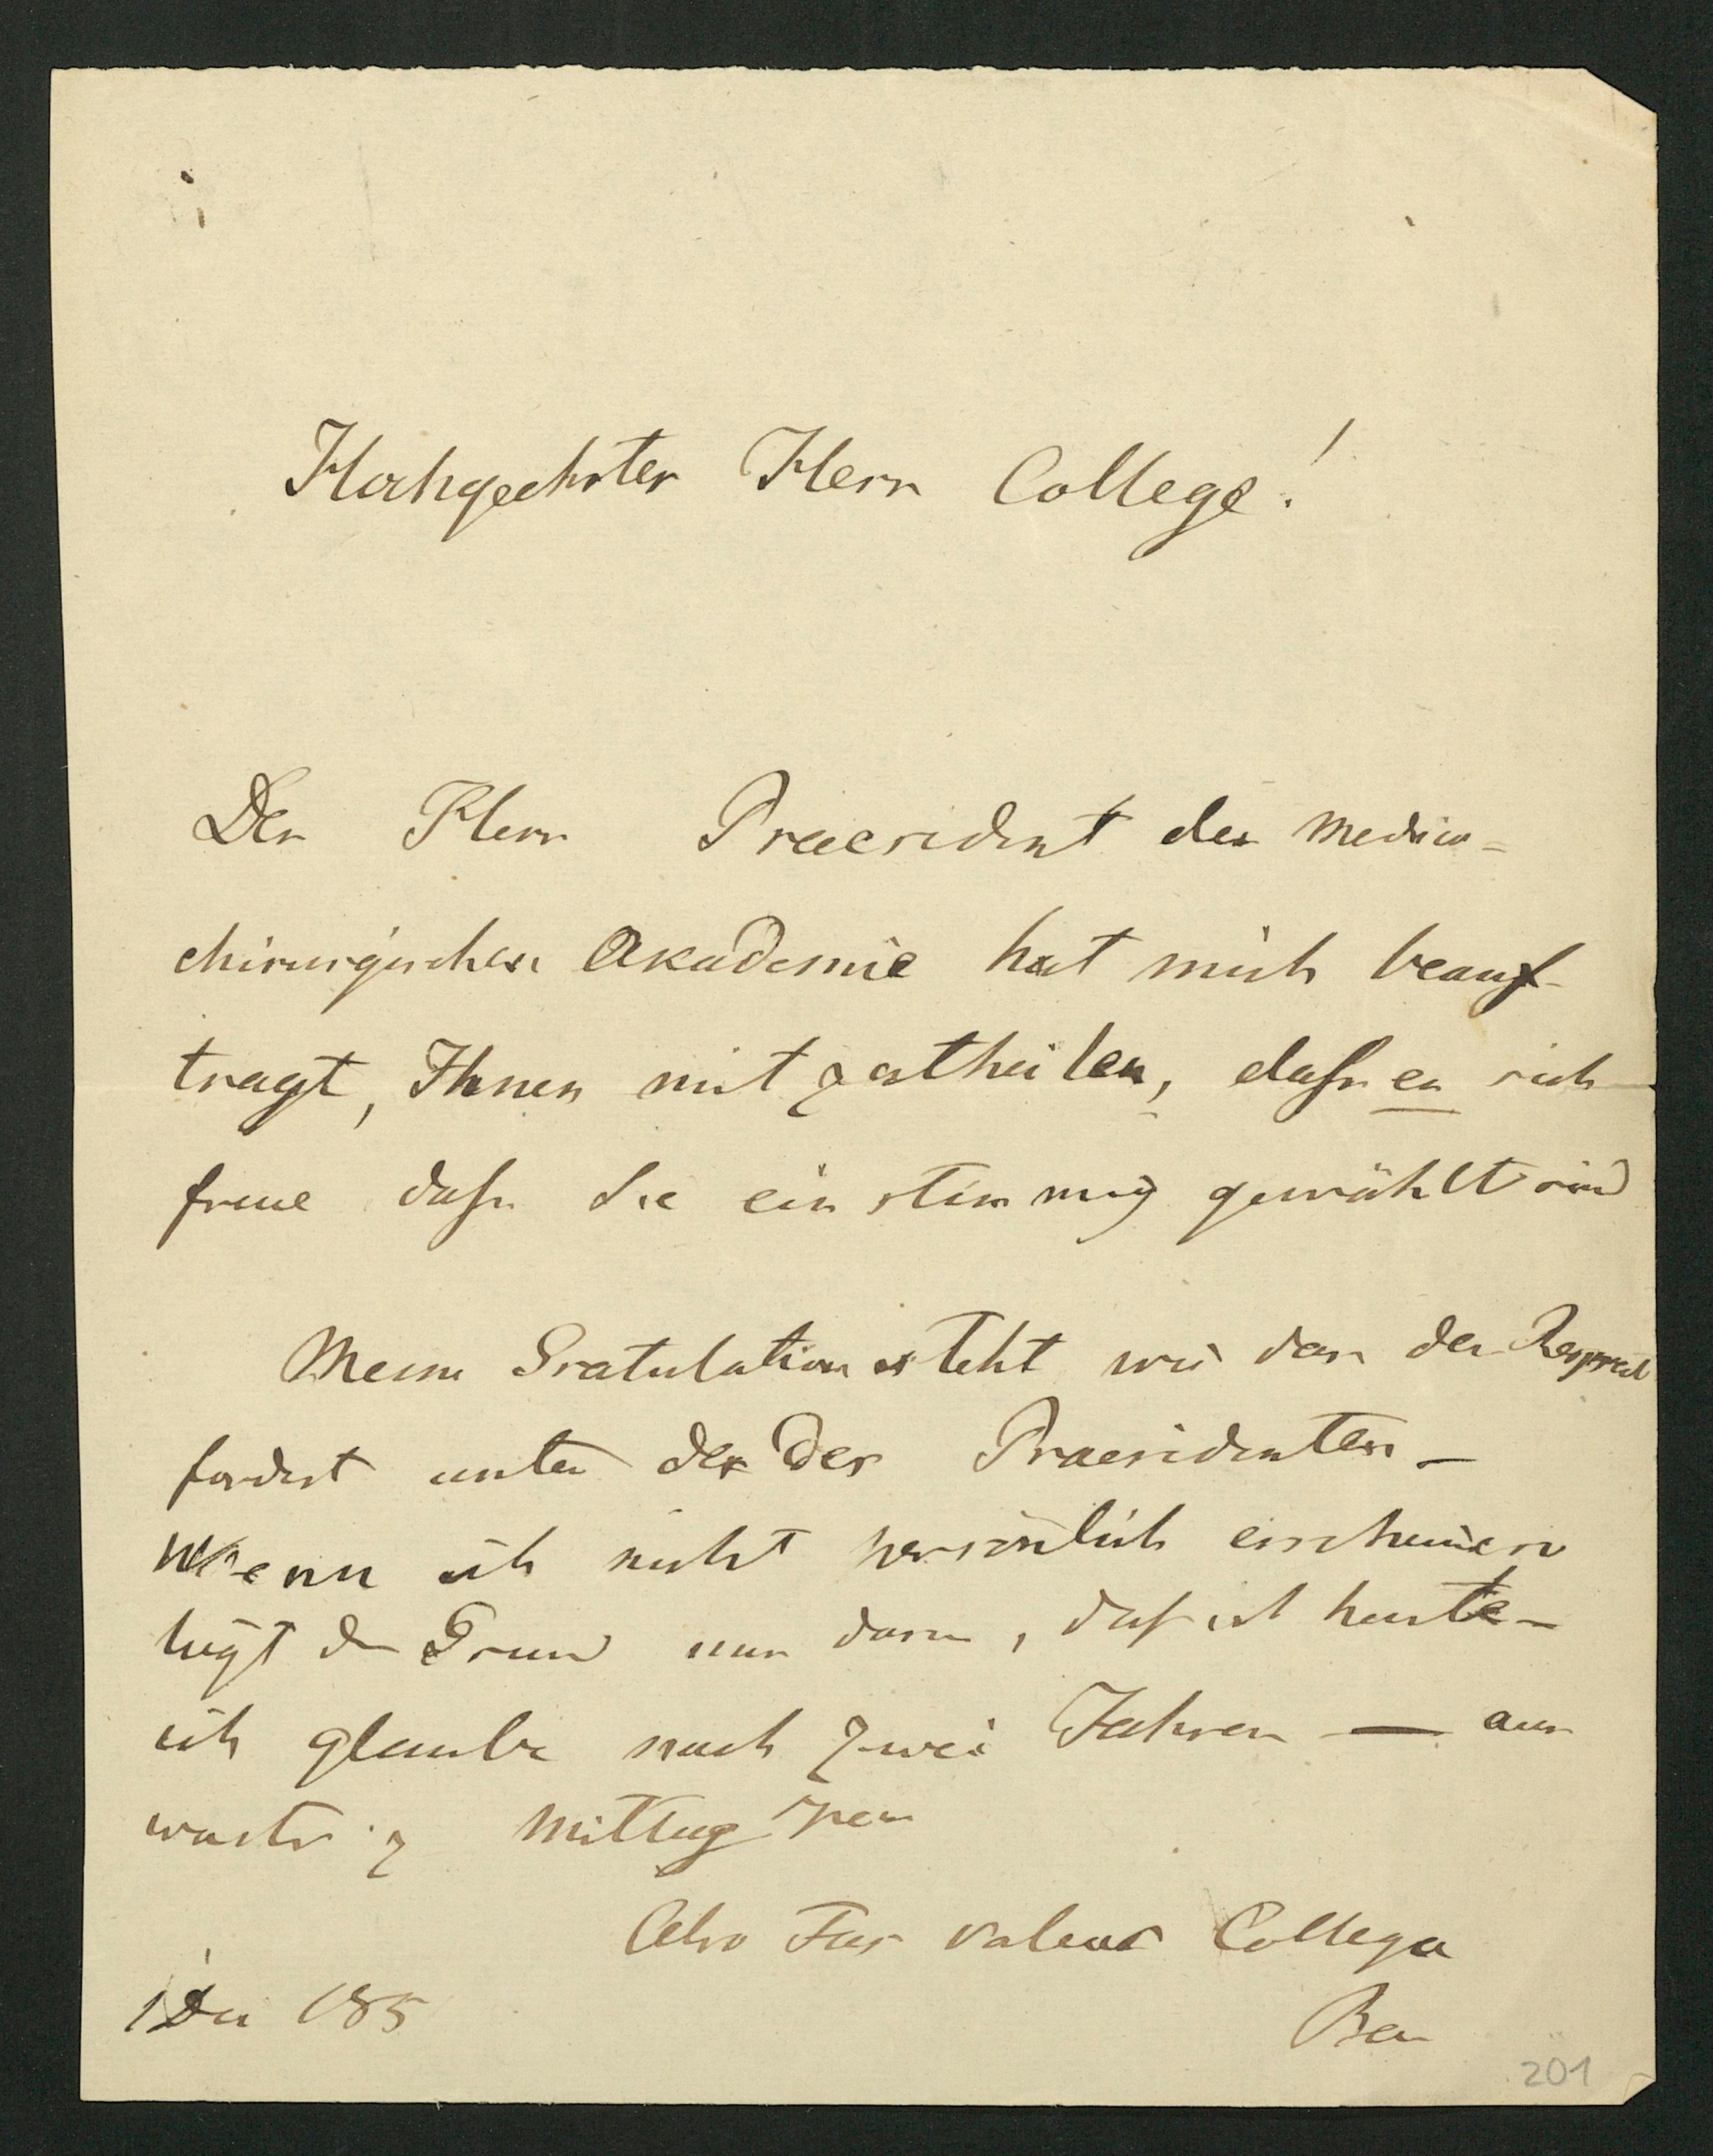 Hochgeehrter Herr College!
Der Herr Praesident der medico-
chirurgischen Akademie hat mich beauf-
tragt, Ihnen mitzutheilen, dass er sich
freue dass Sie einstimmig gewählt sind
Meine Gratulation steht wie dan der Respect
fordert unter der des Praesidenten –
Wenn ich nicht persönlich erscheinen
liegt der Grund nur darin, dass ich heute –
ich glaube nach zwei Jahren — aus
warts z Mittag
Also Collega
201